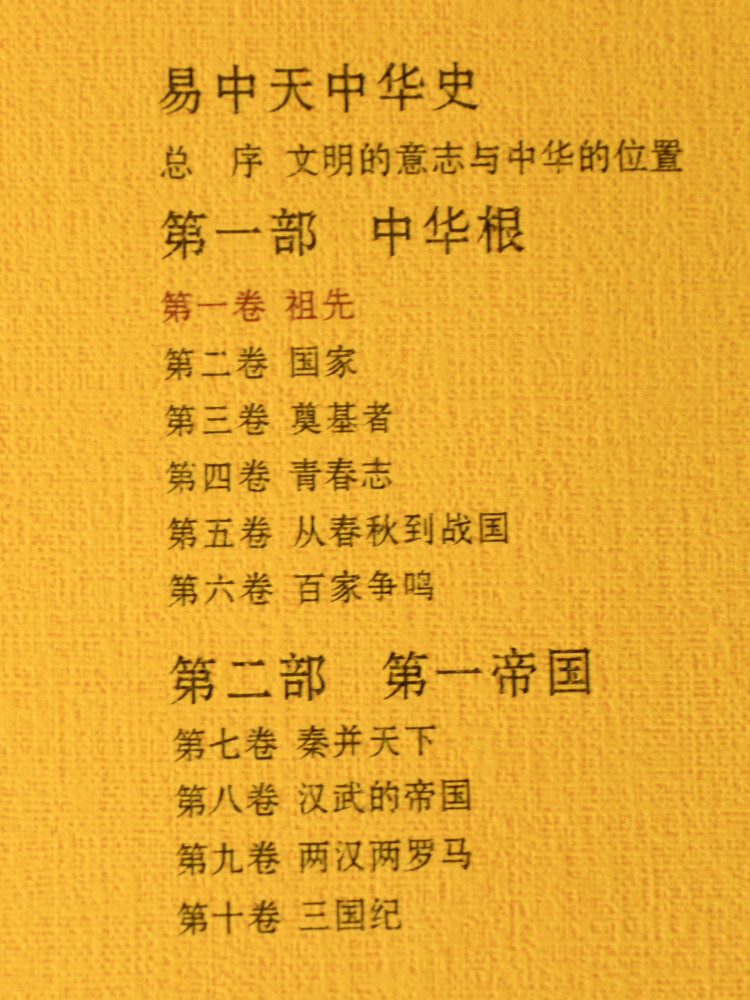 易中天中华史
总　序 文明的意志与中华的位置
第一部　中华根
第一卷 祖先
第二卷 国家
第三卷 奠基者
第四卷 青春志
第五卷 从春秋到战国
第六卷 百家争鸣
第二部　第一帝国
第七卷 秦并天下
第八卷 汉武的帝国
第九卷 两汉两罗马
第十卷 三国纪